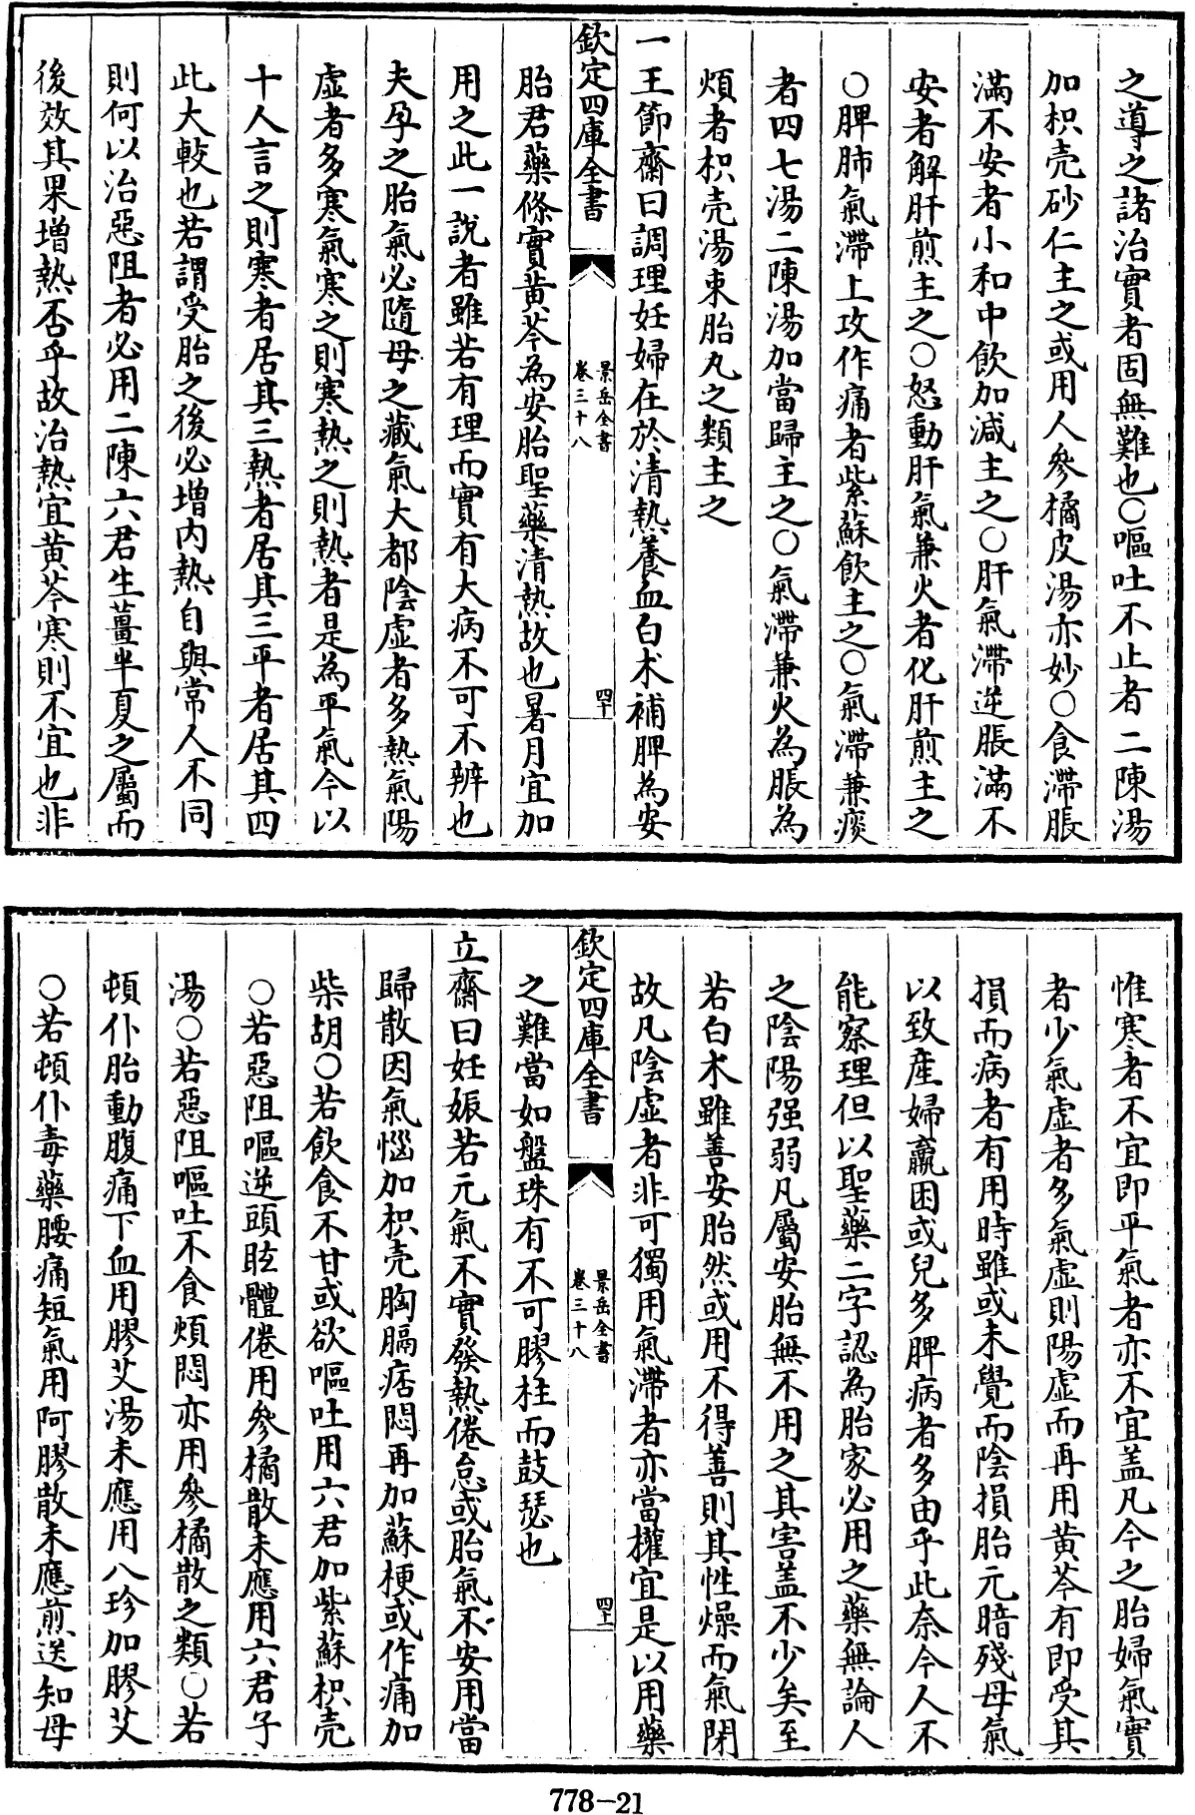 之導之諸治實者固無難也○嘔吐不止者二陳湯
加枳壳砂仁主之或用人參橘皮湯亦妙○食滯脹
滿不安者小和中飲加減主之○肝氣滯逆脹滿不
安者解肝煎主之○怒動肝氣兼火者化肝煎主之
○脾肺氣滯上攻作痛者紫蘇飲主之○氣滯兼痰
者四七湯二陳湯加當歸主之○氣滯兼火為脹為
煩者枳壳湯束胎丸之類主之
一王節齋曰調理妊婦在於清熱養血白术補脾為安
欽定四庫全書
景岳全書
卷三十八
四十
胎君藥條實黄芩為安胎聖藥清熱故也暑月宜加
用之此一說者雖若有理而實有大病不可不辨也
夫孕之胎氣必隨母之藏氣大都陰虛者多熱氣陽
虛者多寒氣寒之則寒熱之則熱者是為平氣今以
十人言之則寒者居其三熱者居其三平者居其四
此大較也若謂受胎之後必增内熱自與常人不同
則何以治惡阻者必用二陳六君生薑半夏之屬而
後效其果增熱否乎故治熱宜黄芩寒則不宜也非
惟寒者不宜即平氣者亦不宜盖凡今之胎婦氣實
者少氣虛者多氣虛則陽虛而再用黄芩有即受其
損而病者有用時雖或未覺而陰損胎元暗殘母氣
以致産婦羸困或兒多脾病者多由乎此奈今人不
能察理但以聖藥二字認為胎家必用之藥無論人
之陰陽强弱凡屬安胎無不用之其害盖不少矣至
若白术雖善安胎然或用不得善則其性燥而氣閉
故凡陰虛者非可獨用氣滯者亦當權宜是以用藥
欽定四庫全書
景岳全書
卷三十八
四十一
之難當如盤珠有不可膠柱而鼓瑟也
立齋曰妊娠若元氣不實發熱倦怠或胎氣不安用當
歸散因氣惱加枳壳胸膈痞悶再加蘇梗或作痛加
柴胡○若飲食不甘或欲嘔吐用六君加紫蘇枳壳
○若惡阻嘔逆頭眩體倦用參橘散未應用六君子
湯○若惡阻嘔吐不食煩悶亦用參橘散之類○若
頓仆胎動腹痛下血用膠艾湯未應用八珍加膠艾
○若頓仆毒藥腰痛短氣用阿膠散未應煎送知母
778-21